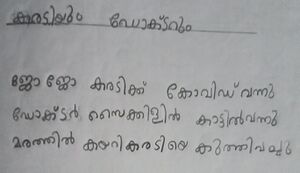 കരടിയും ഡോക്ടറും
ജോ ജോ കരടിക്ക് കോവിഡ് വന്നു
ഡോക്ടർ സൈക്കിളിൽ കാട്ടിൽ വന്നു
മരത്തിൽ കയറി കരടിയെ കുത്തിവച്ചു